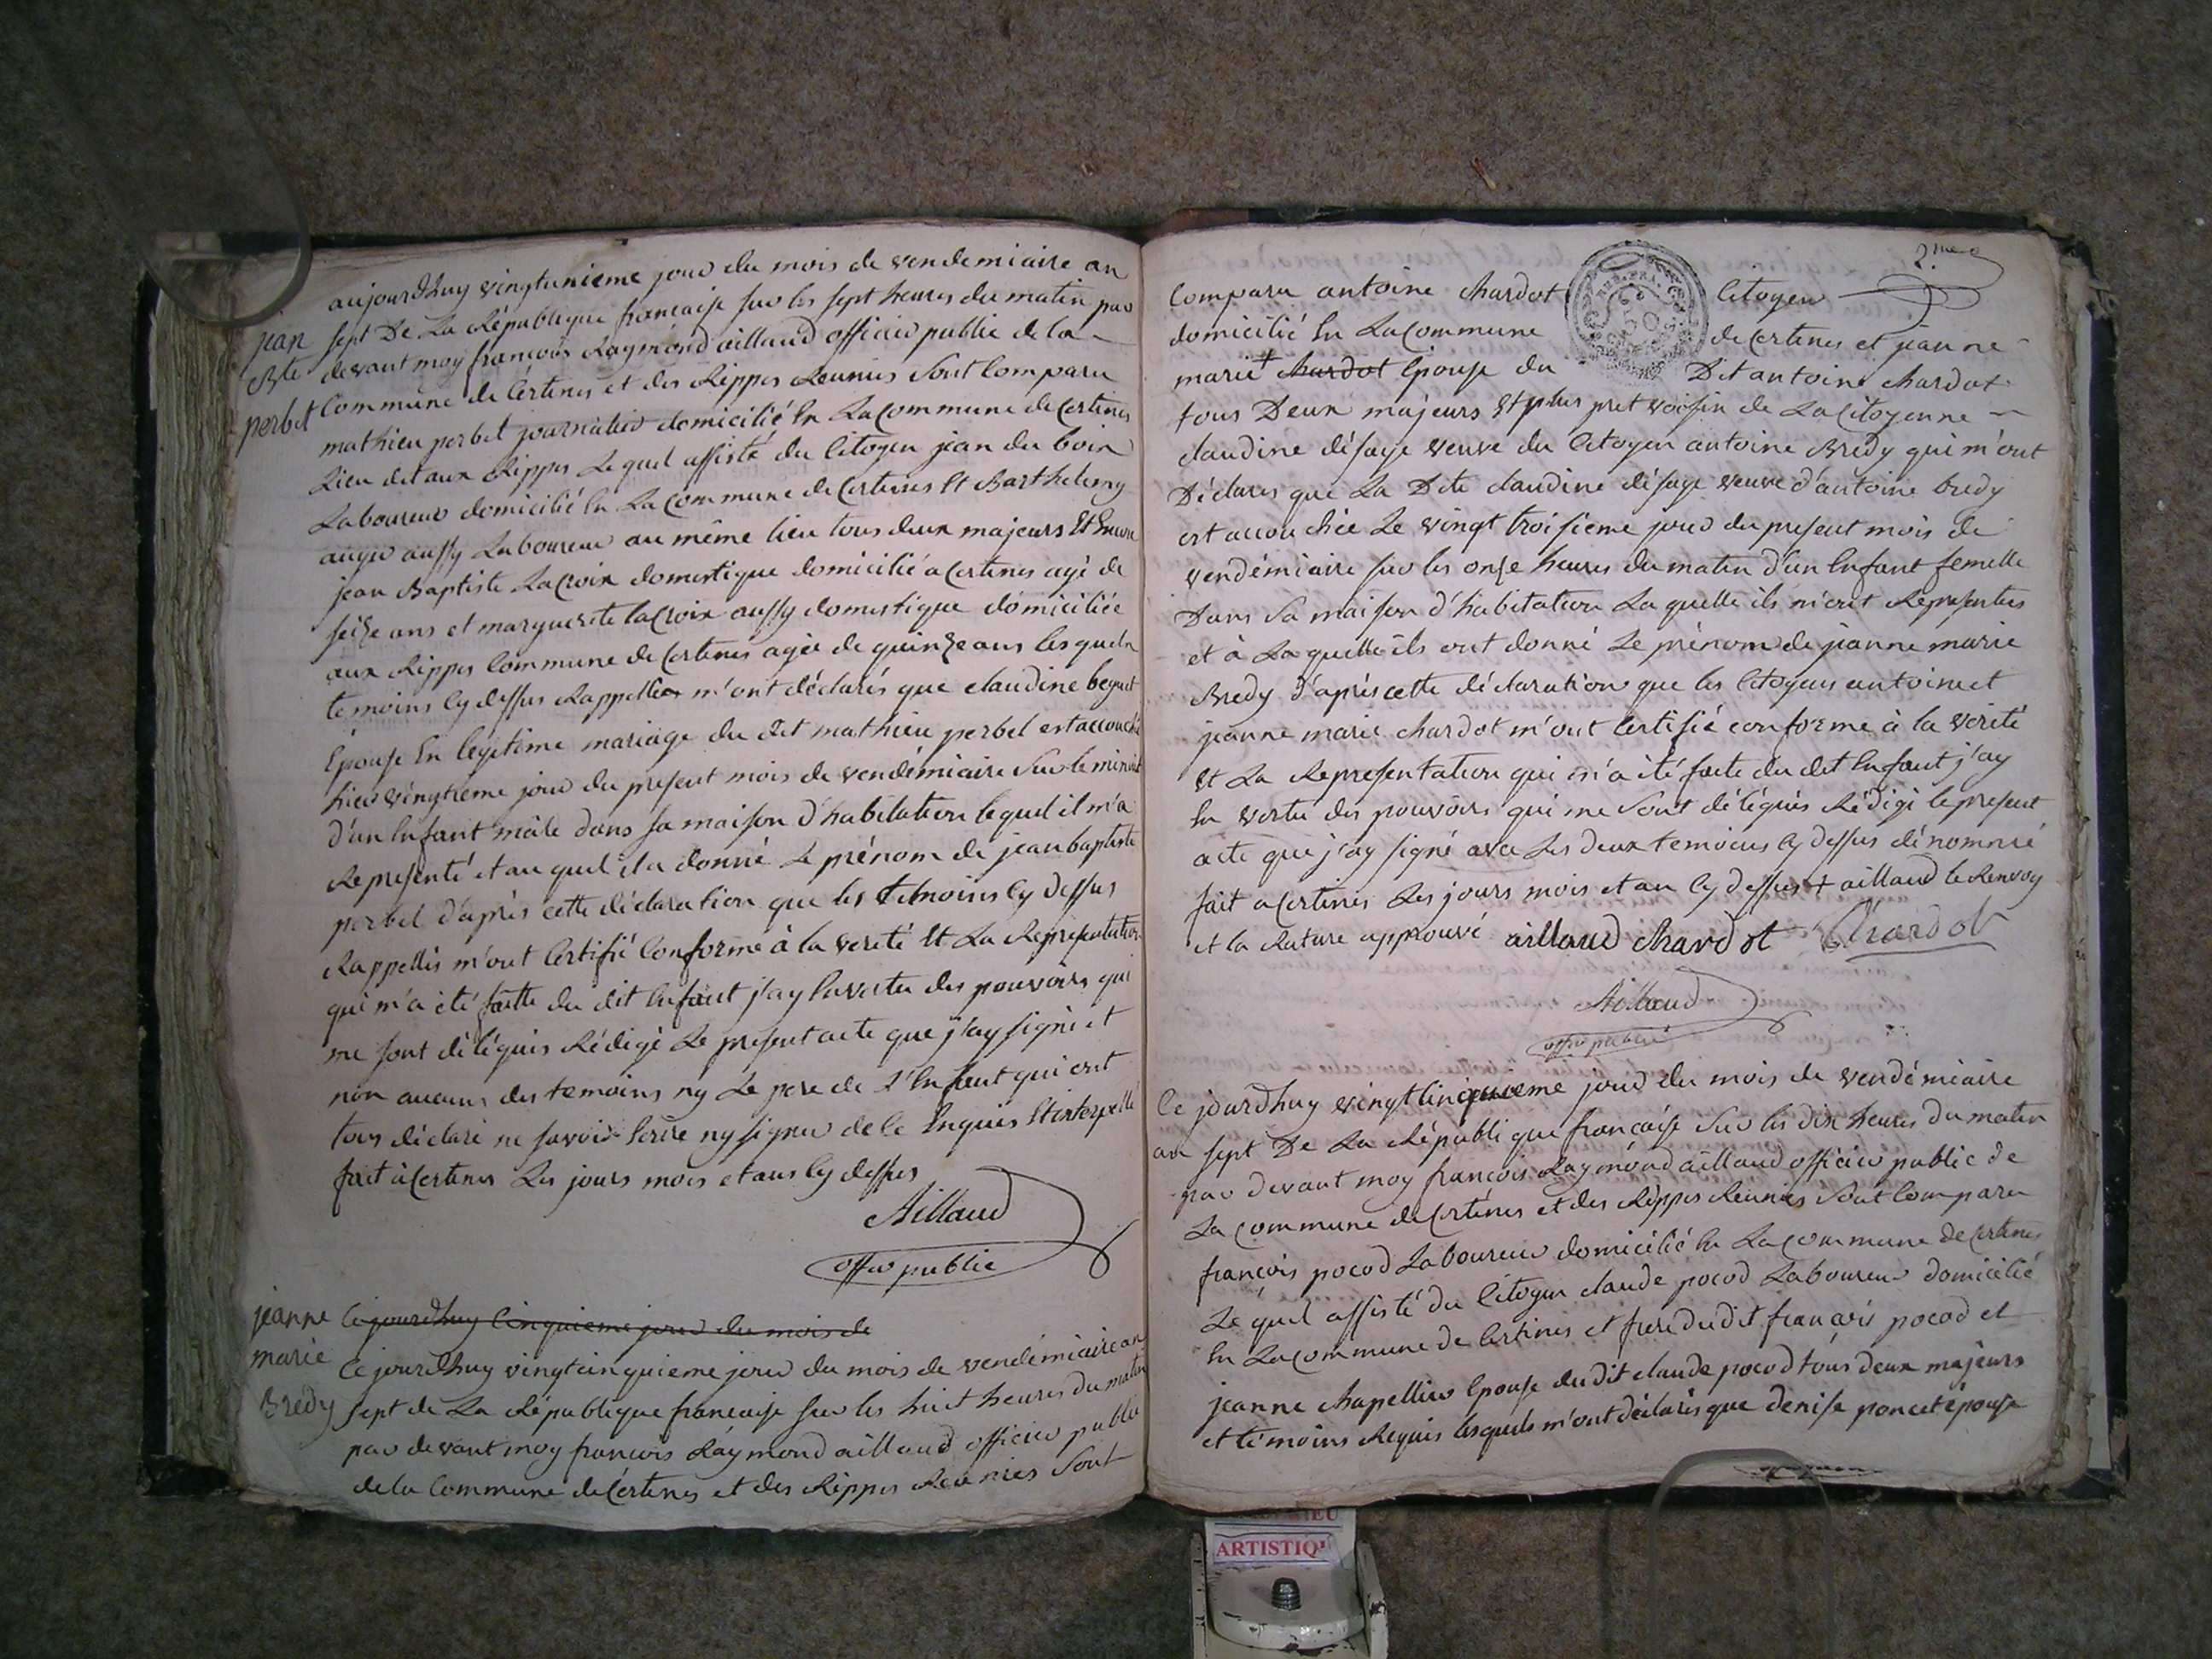 aujourdhuy vingtunieme jour du mois de vendemiaire an
jean sept De La République francaise sur les sept heures du matin par
Bte devant moy françois Raymond aillaud officier public de la
perbet Commune de Certines et des Rippes Reunies sont Comparu
mathieu perbet journalier domicilié En La Commune de Certines
Lieu dit aux Rippes Lequel assisté du Citoyen jean du bois
Laboureur domicilié En La Commune de Certines Et Barthelemy
auger aussy Laboureur au même lieu tous deux majeurs Et Encore
jean Baptiste Lacroix domestique domicilié a Certines agé de
seize ans et marguerite lacroix aussy domestique domiciliée
aux Rippes Commune de Certines agée de quinze ans lesquels
temoins Cy dessus Rappellés m'ont déclarés que claudine beguet
Epouse En légitime mariage du dit mathieu perbet est accouché
hier vingtieme jour du present mois de vendémiaire sur le minuit
d'un Enfant mâle dans sa maison d'habitation lequel il m'a
Representé et au quel il a donné Le prénom de jean baptiste
perbet d'après cette déclaration que les temoins Cy dessus
Rappellés m'ont Certifié Conforme à la verité Et La Representation
qui m'a été faitte du dit Enfant j'ay En vertu des pouvoirs qui
me sont délégués Rédigé Le present acte que j'ay signé et
non aucuns des temoins ny Le pere de L'Enfant qui ont
tous déclaré ne savoir Ecrire ny signer de Ce Enquis Et interpellé
fait à Certines Les jours mois et ans Cy dessus
Aillaud
offer public
jeanne Ce jourdhuy Cinquieme jour du mois de
marie Ce jourdhuy vingtcinquieme jour du mois de vendémiaire an
Bredy sept de La République francaise sur les huit heures du matin
par devant moy francois Raymond aillaud officier public
de la Commune de Certines et des Rippes Reunies Sont
2.me
Comparu antoine chardot Citoyen
domicilié En La Commune de Certines et jeanne
marie + chardot Epouse du Dit antoine chardot
tous Deux majeurs Et plus pret voisin de La Citoyenne
claudine désage veuve du Citoyen antoine Bredy qui m'ont
Déclarés que La Dite claudine désage veuve d'antoine bredy
est accouchée Le vingt troisieme jour du present mois de
vendémiaire sur les onze heures du matin d'un Enfant femelle
Dans Sa maison d'habitation La quelle ils m'ont Representés
et à La quelle ils ont donné Le prénom de jeanne marie
Bredy d'après cette déclaration que les Citoyens antoine et
jeanne marie chardot m'ont Certifié conforme à la verité
Et La Representation qui m'a été faite du dit Enfant j'ay
En vertu des pouvoirs qui me Sont délégués Rédigé le present
acte que j'ay signé avec Les deux temoins Cy dessus dénommé
fait a Certines Les jours mois et an Cy dessus + aillaud le Renvoy
et la Rature approuvé aillaud chardot Chardot
Aillaud
offer public
Ce jourdhuy vingtcinquieme jour du mois de vendémiaire
an sept De La République francaise Sur les dix heures du matin
par devant moy francois Raymond aillaud officier public de
La Commune de Certines et des Rippes Reunies Sont Comparu
françois pocod Laboureur domicilié En La Commune de Certines
Le quel assisté du Citoyen claude pocod Laboureur domicilié
En La Commune de Certines et frere du dit françois pocod et
jeanne chapellier Epouse du dit claude pocod tous deux majeurs
et témoins Requis lesquels m'ont déclarés que denise poncet épouse
ARTISTIQ